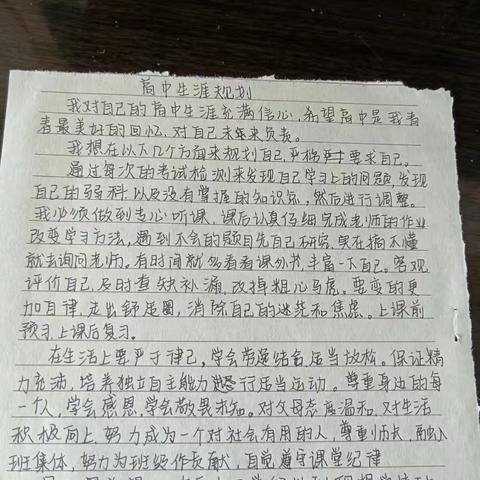 高中生涯规划
我对自己的高中生涯充满信心,希望高中是我青
春最美好的回忆,对自己未来负责。
我想在以下几个方面来规划自己,严格要求自己。
通过每次的考试检测来发现自己学习上的问题,发现
自己的弱科以及没有掌握的知识点,然后进行调整。
我必须做到专心听课,课后认真仔细完成老师的作业
改变学习方法,遇到不会的题目先自己研究,实在搞不懂
就去询问老师。有时间就多看看课外书,丰富一下自己。客观
评价自己,及时查缺补漏,改掉粗心马虎。要变的更
加自律,走出舒适圈,消除自己的迷茫和焦虑。上课前
预习,上课后复习。
在生活上要严于律己,学会劳逸结合,适当放松。保证精
力充沛,培养独立自主能力,进行适当运动。尊重身边的每
一个人,学会感恩,学会敬畏未知。对父母态度温和,对生活
积极向上,努力成为一个对社会有用的人,尊重师长,融入
班集体,努力为班级作贡献,自觉遵守课堂纪律